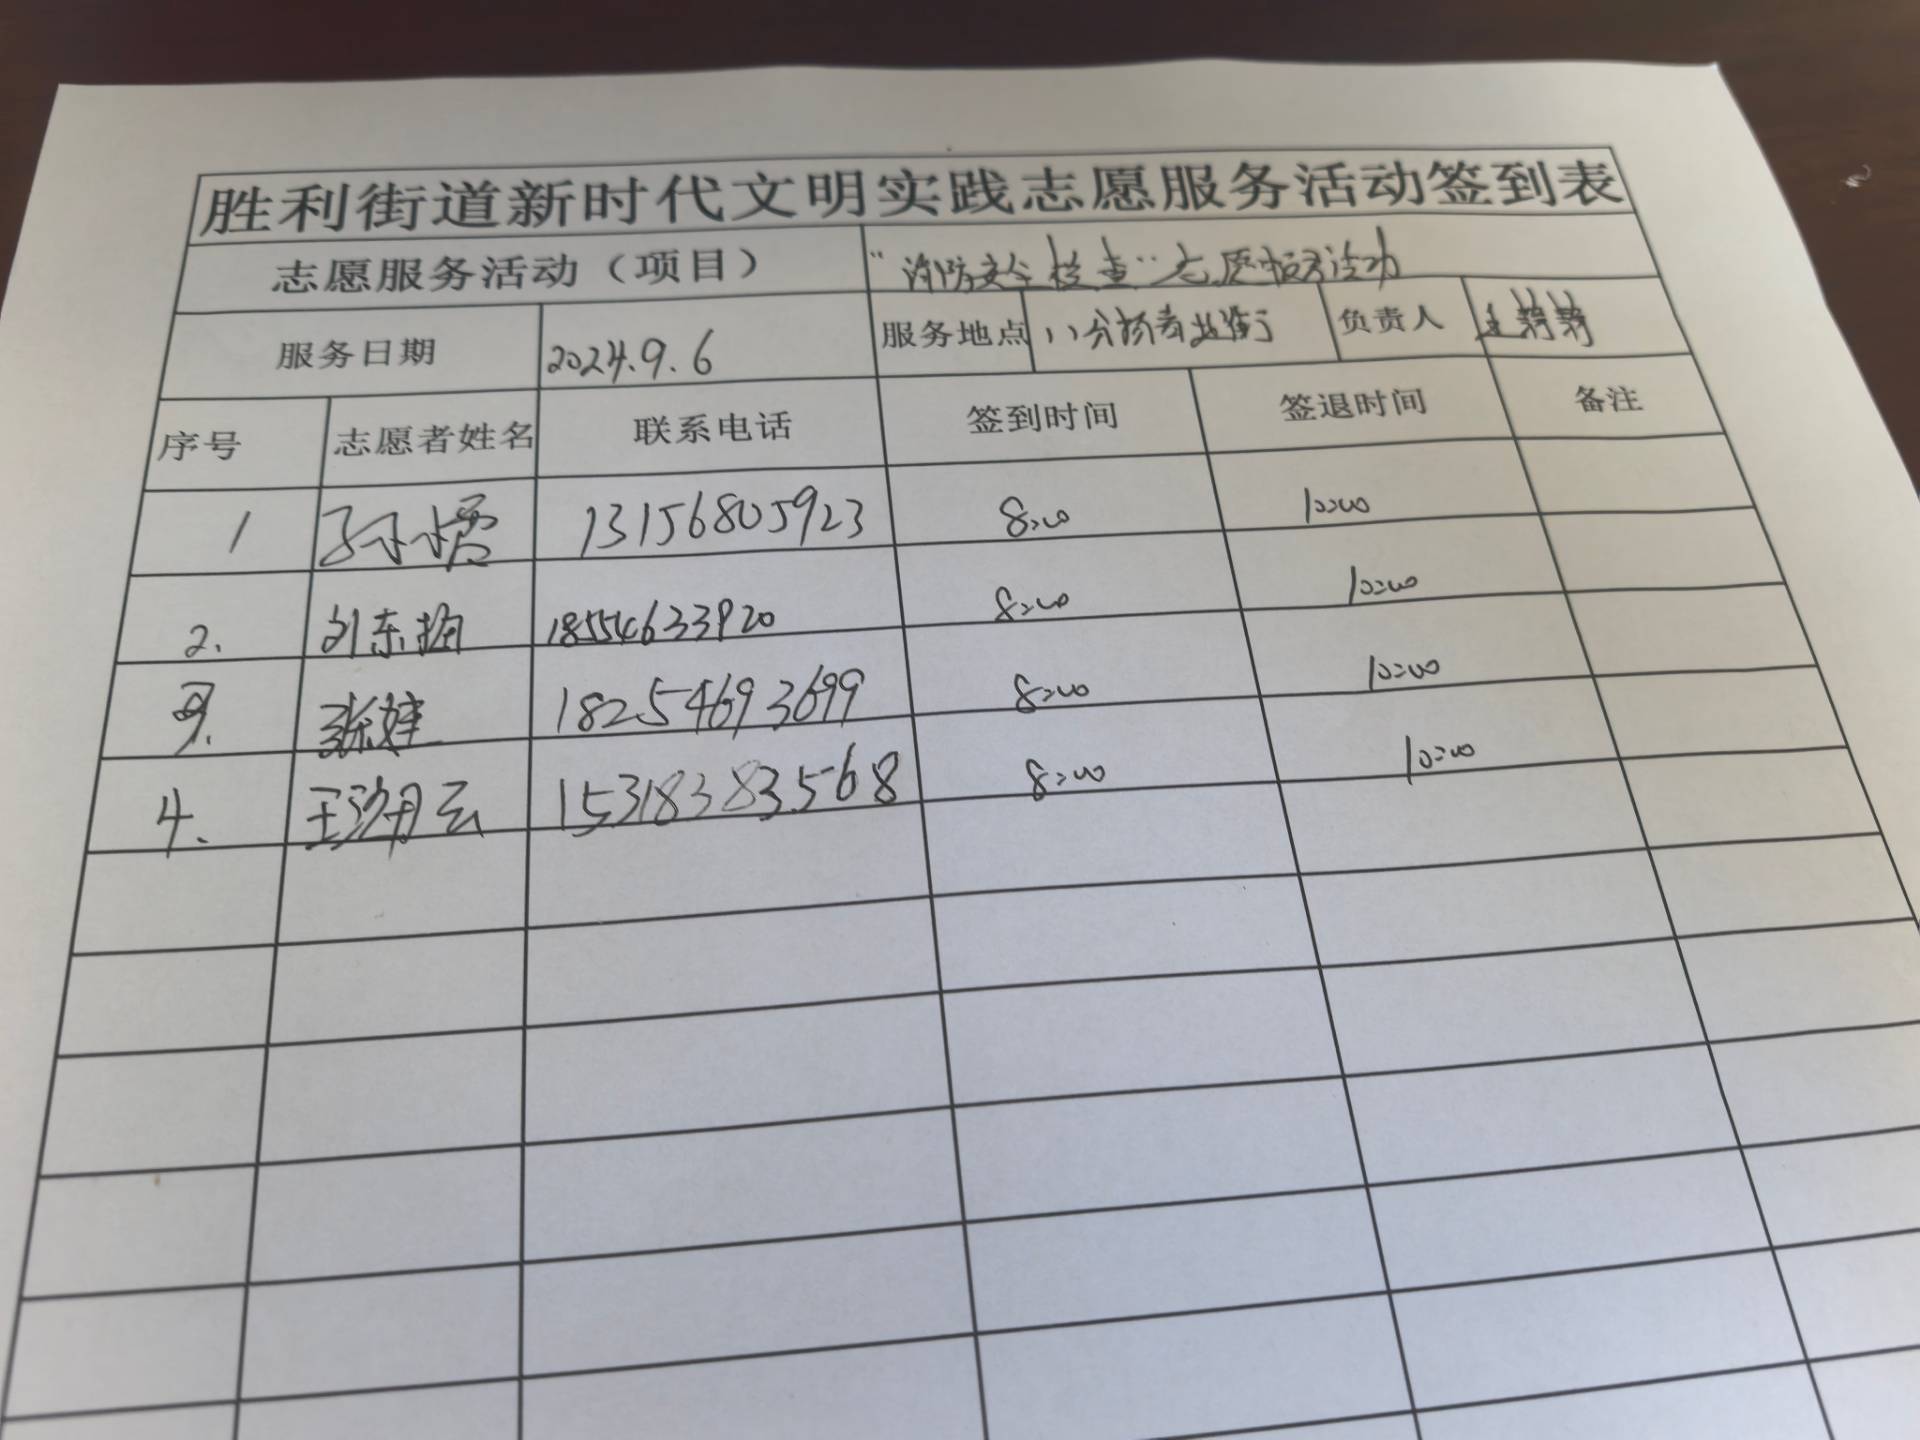 胜利街道新时代文明实践志愿服务活动签到表
志愿服务活动（项目） “消防安全检查”志愿服务活动
服务日期 2024.9.6 服务地点 负责人
序号 志愿者姓名 联系电话 签到时间 签退时间 备注
1 13156805923 8:00 10:00
2. 刘东梅 18554633920 8:00 10:00
3. 张婕 18254693699 8:00 10:00
4. 15318383568 8:00 10:00